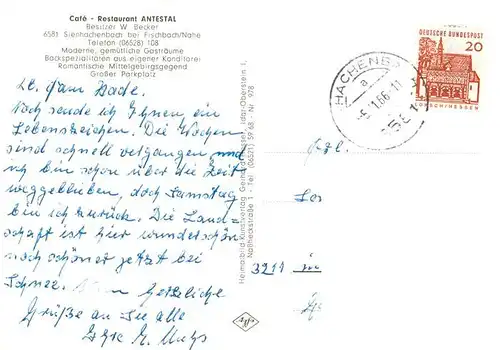 Café - Restaurant ANTESTAL
Besitzer W. Becker
6581 Sienhachenbach bei Fischbach/Nahe
Telefon (06528) 108
Moderne, gemütliche Gasträume
Backspezialitäten aus eigener Konditorei
Romantische Mittelgebirgsgegend
Großer Parkplatz
DEUTSCHE BUNDESPOST
20
LORSCH/HESSEN
HACHENB
a
-6.1.66-11
Noch sende ich Ihnen ein
Lebenszeichen. Die Wochen
sind schnell vergangen und
ich bin schon über die Zeit
weggeblieben, doch Samstag
bin ich zurück. Die Land-
schaft ist hier wunderschön
noch schöner jetzt bei
Schnee. Herzliche
Grüße an Sie alle
Ihre E.
Heimatbild-Kunstverlag Idar-Oberstein 1,
- Tel. (06781) - Nr. 978